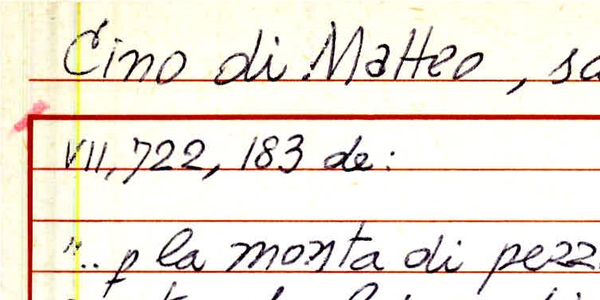 Cino di Matteo, sa
VII, 722, 183 de:
".. p la monta di pezz